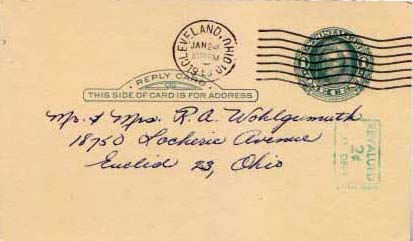 CLEVELAND, OHIO
JAN 24
REPLY CARD
THIS SIDE OF CARD IS FOR ADDRESS
Mr. & Mrs. R. A. Wohlgemuth
18750 Locherie Avenue
Euclid 23, Ohio
REVALUED
2¢